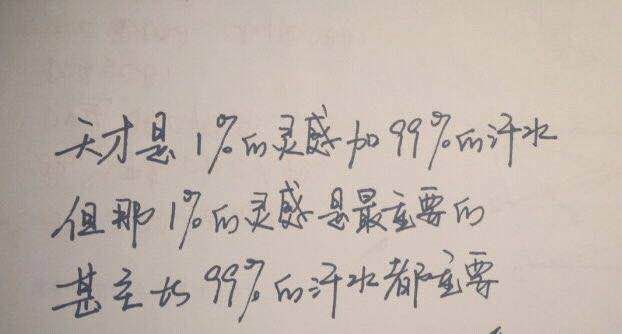 天才是1%的灵感加99%的汗水
但那1%的灵感是最重要的
甚至比99%的汗水都重要